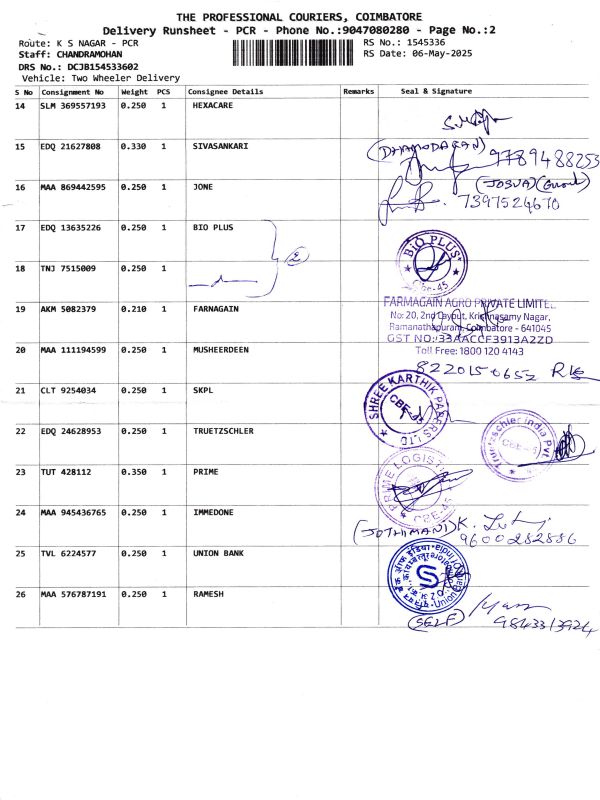 THE PROFESSIONAL COURIERS, COIMBATORE
Delivery Runsheet - PCR - Phone No.:9047080280 - Page No.:2
Route: K S NAGAR - PCR
RS No.: 1545336
Staff: CHANDRAMOHAN
RS Date: 06-May-2025
DRS No.: DCJB154533602
Vehicle: Two Wheeler Delivery
S No Consignment No Weight PCS Consignee Details Remarks Seal & Signature
14 SLM 369557193 0.250 1 HEXACARE
15 EDQ 21627808 0.330 1 SIVASANKARI
(DHAMODARAN) 9789488253
16 MAA 869442595 0.250 1 JONE
(JOSVA)
7397524670
17 EDQ 13635226 0.250 1 BIO PLUS
BIO PLUS
CBE-45
18 TNJ 7515009 0.250 1
2
19 AKM 5082379 0.210 1 FARNAGAIN
FARMAGAIN AGRO PRIVATE LIMITED
No: 20, 2nd Layout, Krishnasamy Nagar,
Ramanathapuram, Coimbatore - 641045
GST NO: 33AACCF3913A2ZD
Toll Free: 1800 120 4143
20 MAA 111194599 0.250 1 MUSHERDEEN
8220150652
21 CLT 9254034 0.250 1 SKPL
SHREE KARTHIK PAPERS LTD
CBE-45
22 EDQ 24628953 0.250 1 TRUETZSCHLER
Truetzschler India Pvt.
23 TUT 428112 0.350 1 PRIME
PRIME LOGISTI
CBE-45
24 MAA 945436765 0.250 1 IMMEDONE
(JOTHIMANI)
9600282886
25 TVL 6224577 0.250 1 UNION BANK
26 MAA 576787191 0.250 1 RAMESH
(SELF) 9843313924